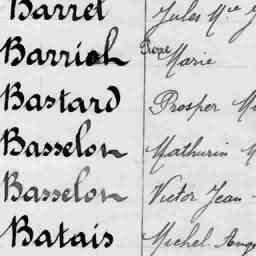 Barret Jules Mie
Barriol Pierre Marie
Bastard Prosper
Basselon Mathurin
Basselon Victor Jean
Batais Michel Aug